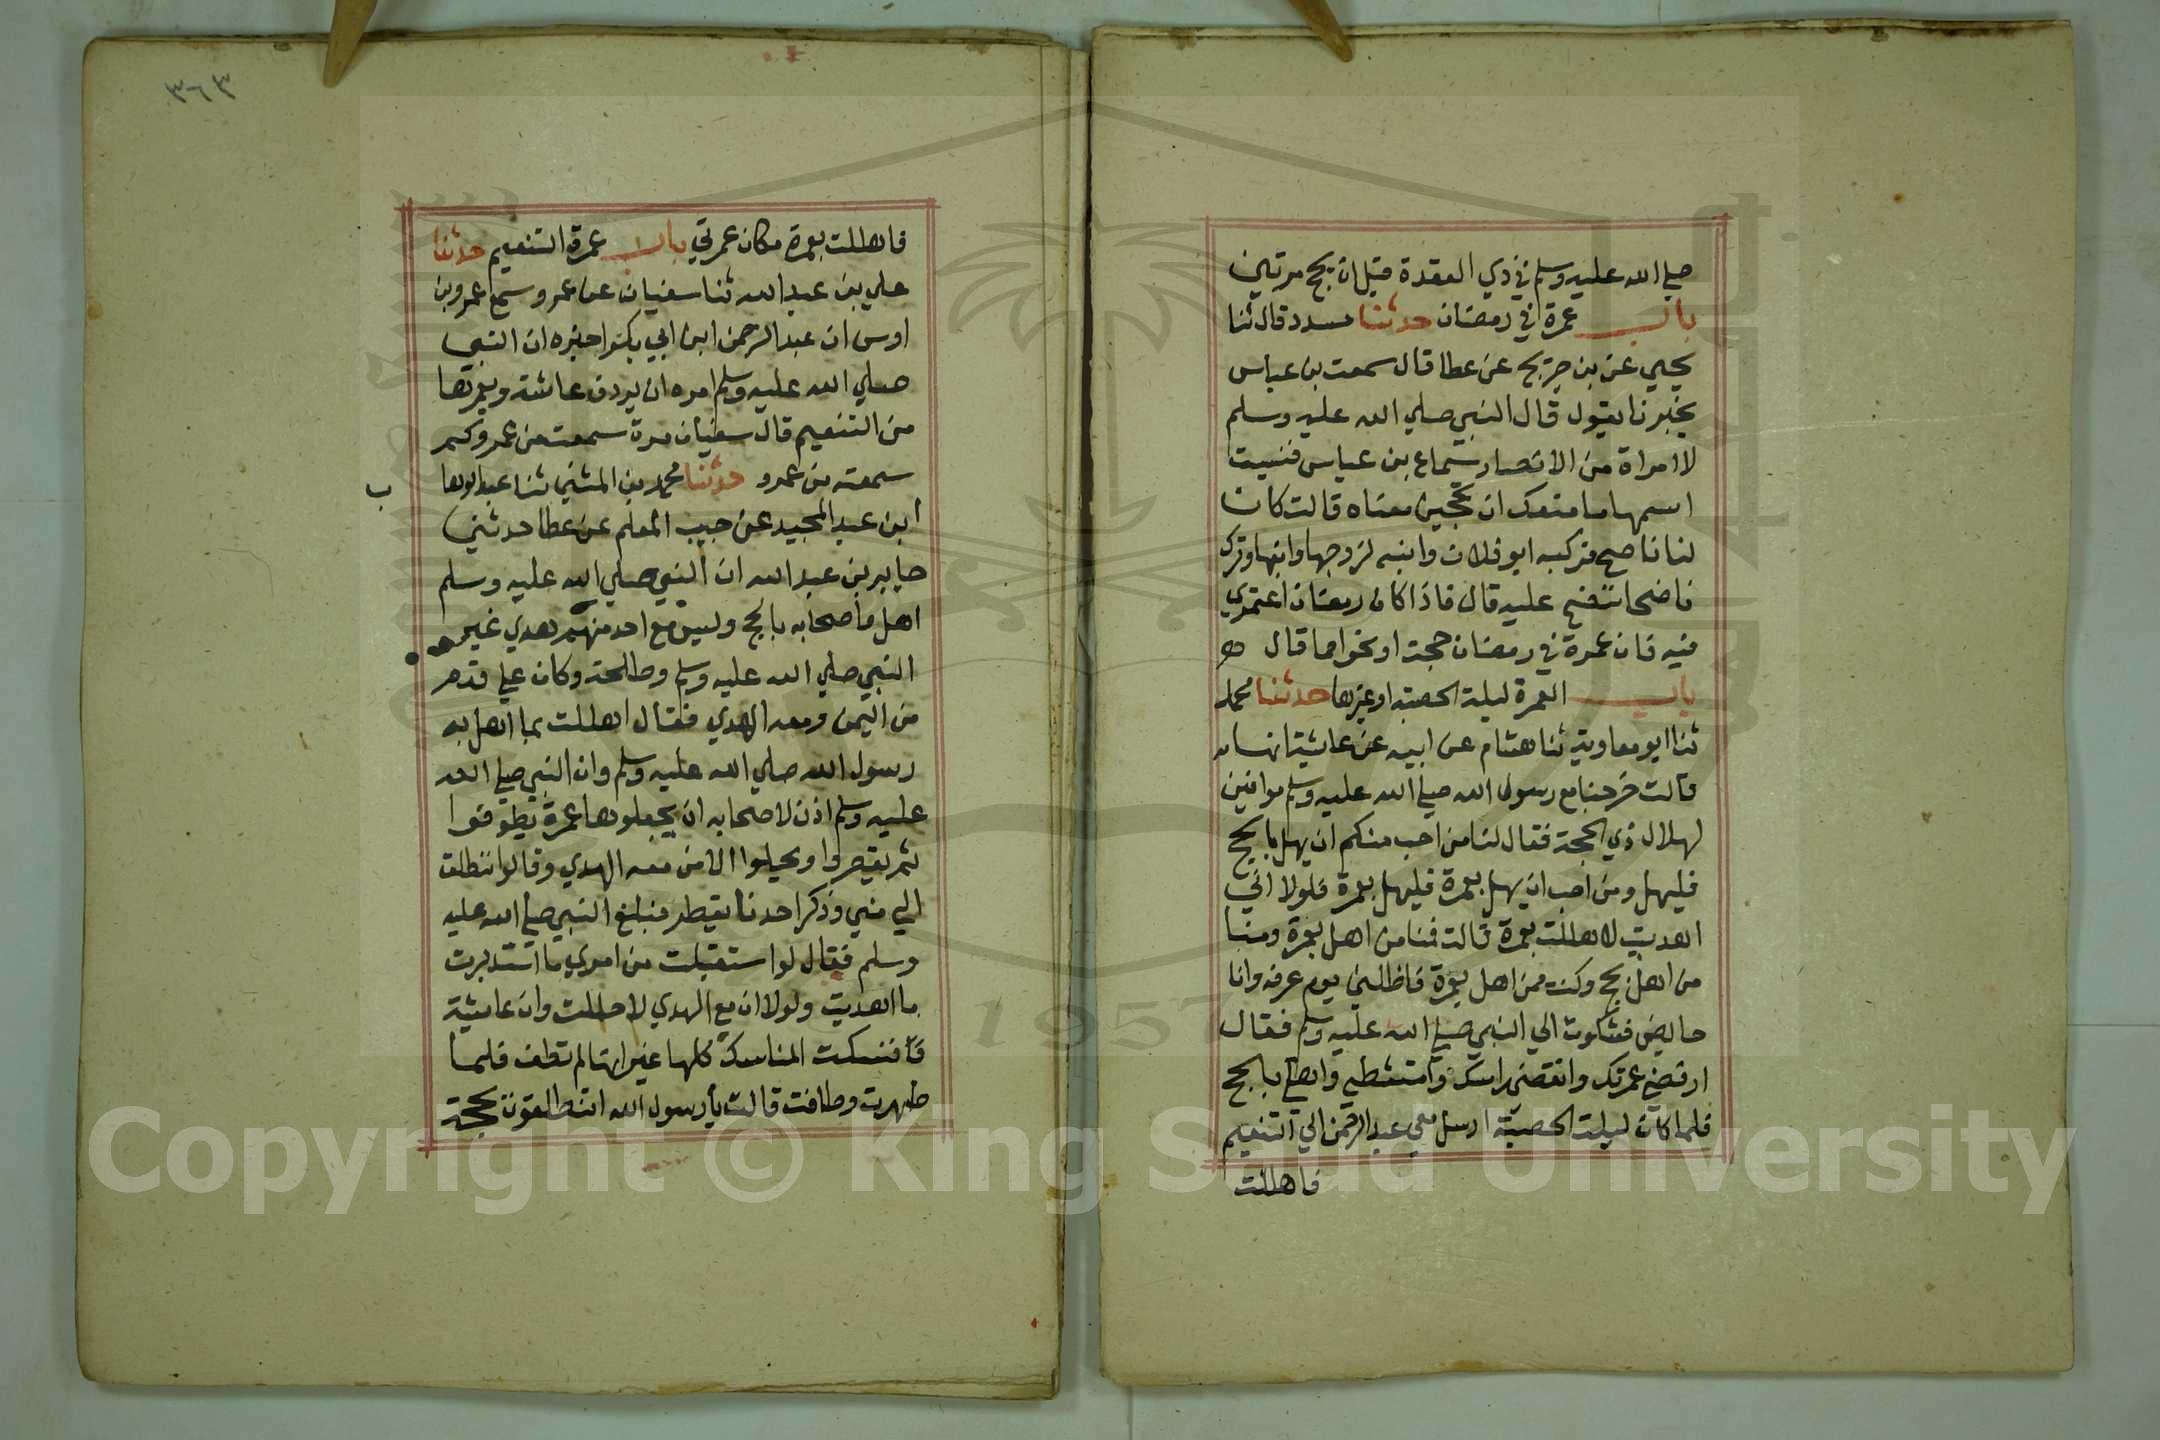 صلي الله عليه وسلم في ذي القعدة قبل ان يحج مرتين
باب عمرة في رمضان حدثنا مسدد قال ثنا
يحيي عن بن جريج عن عطا قال سمعت بن عباس
يخبرنا يقول قال النبي صلي الله عليه وسلم
لامراة من الانصار سماع بن عباس فنسيت
اسمها ما منعك ان تحجين معناه قالت كان
لنا ناضح فركبه ابو فلان وابنه لزوجها وابنها وترك
ناضحا ننضح عليه قال فاذا كان رمضان اعتمري
فيه فان عمرة في رمضان حجة او نحوا مما قال
باب العمرة ليلة الحصبة او غيرها حدثنا محمد
ثنا ابو معاوية ثنا هشام عن ابيه عن عايشة انها
قالت خرجنا مع رسول الله صلي الله عليه وسلم موافين
لهلال ذي الحجة فقال لنا من احب منكم ان يهل بالحج
فليهل ومن احب ان يهل بعمرة فليهل بعمرة فلولا اني
اهديت لاهللت بعمرة قالت فمنا من اهل بعمرة ومنا
من اهل بحج وكنت ممن اهل بعمرة فاظلني يوم عرفه وانا
حايض فشكوت الي النبي صلي الله عليه وسلم فقال
ارفضي عمرتك وانقضي راسك وامتشطي واهلي بالحج
فلما كان ليلة الحصبة ارسل معي عبد الرحمن الي التنعيم
فاهللت
٣٦٣
فاهللت بعمرة مكان عمرتي باب عمرة التنعيم حدثنا
علي بن عبد الله ثنا سفيان عن عمرو سمع عمرو بن
اوس ان عبد الرحمن ابن ابي بكر اخبره ان النبي
صلي الله عليه وسلم امره ان يردف عائشة ويعمرها
من التنعيم قال سفيان مرة سمعت من عمرو كم
سمعته من عمرو حدثنا محمد بن المثني ثنا عبد الوها
ب
ابن عبد المجيد عن حبيب المعلم عن عطا حدثني
جابر بن عبد الله ان النبي صلي الله عليه وسلم
اهل واصحابه بالحج وليس مع احد منهم هدي غير
النبي صلي الله عليه وسلم وطلحة وكان علي قدم
من اليمن ومعه الهدي فقال اهللت بما اهل به
رسول الله صلي الله عليه وسلم وان النبي صلي الله
عليه وسلم اذن لاصحابه ان يجعلوها عمرة يطوفوا
ثم يقصروا ويحلوا الا من معه الهدي وقالوا ننطلق
الي مني وذكر احدنا يقطر فبلغ النبي صلي الله عليه
وسلم فقال لو استقبلت من امري ما استدبرت
ما اهديت ولولا ان مع الهدي لاحللت وان عايشة
فنسكت المناسك كلها غير انها لم تطف فلما
طهرت وطافت قالت يا رسول الله اتنطلقون بحجة
Copyright © King Saud University
1957